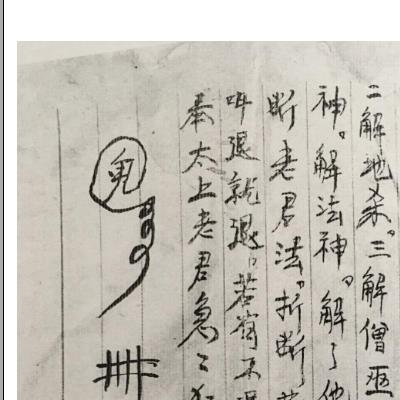 二解地杀。三解僧巫
神。解法神。解了他
断老君法。折断
叫退就退。若有不退
奉太上老君急々
鬼
井